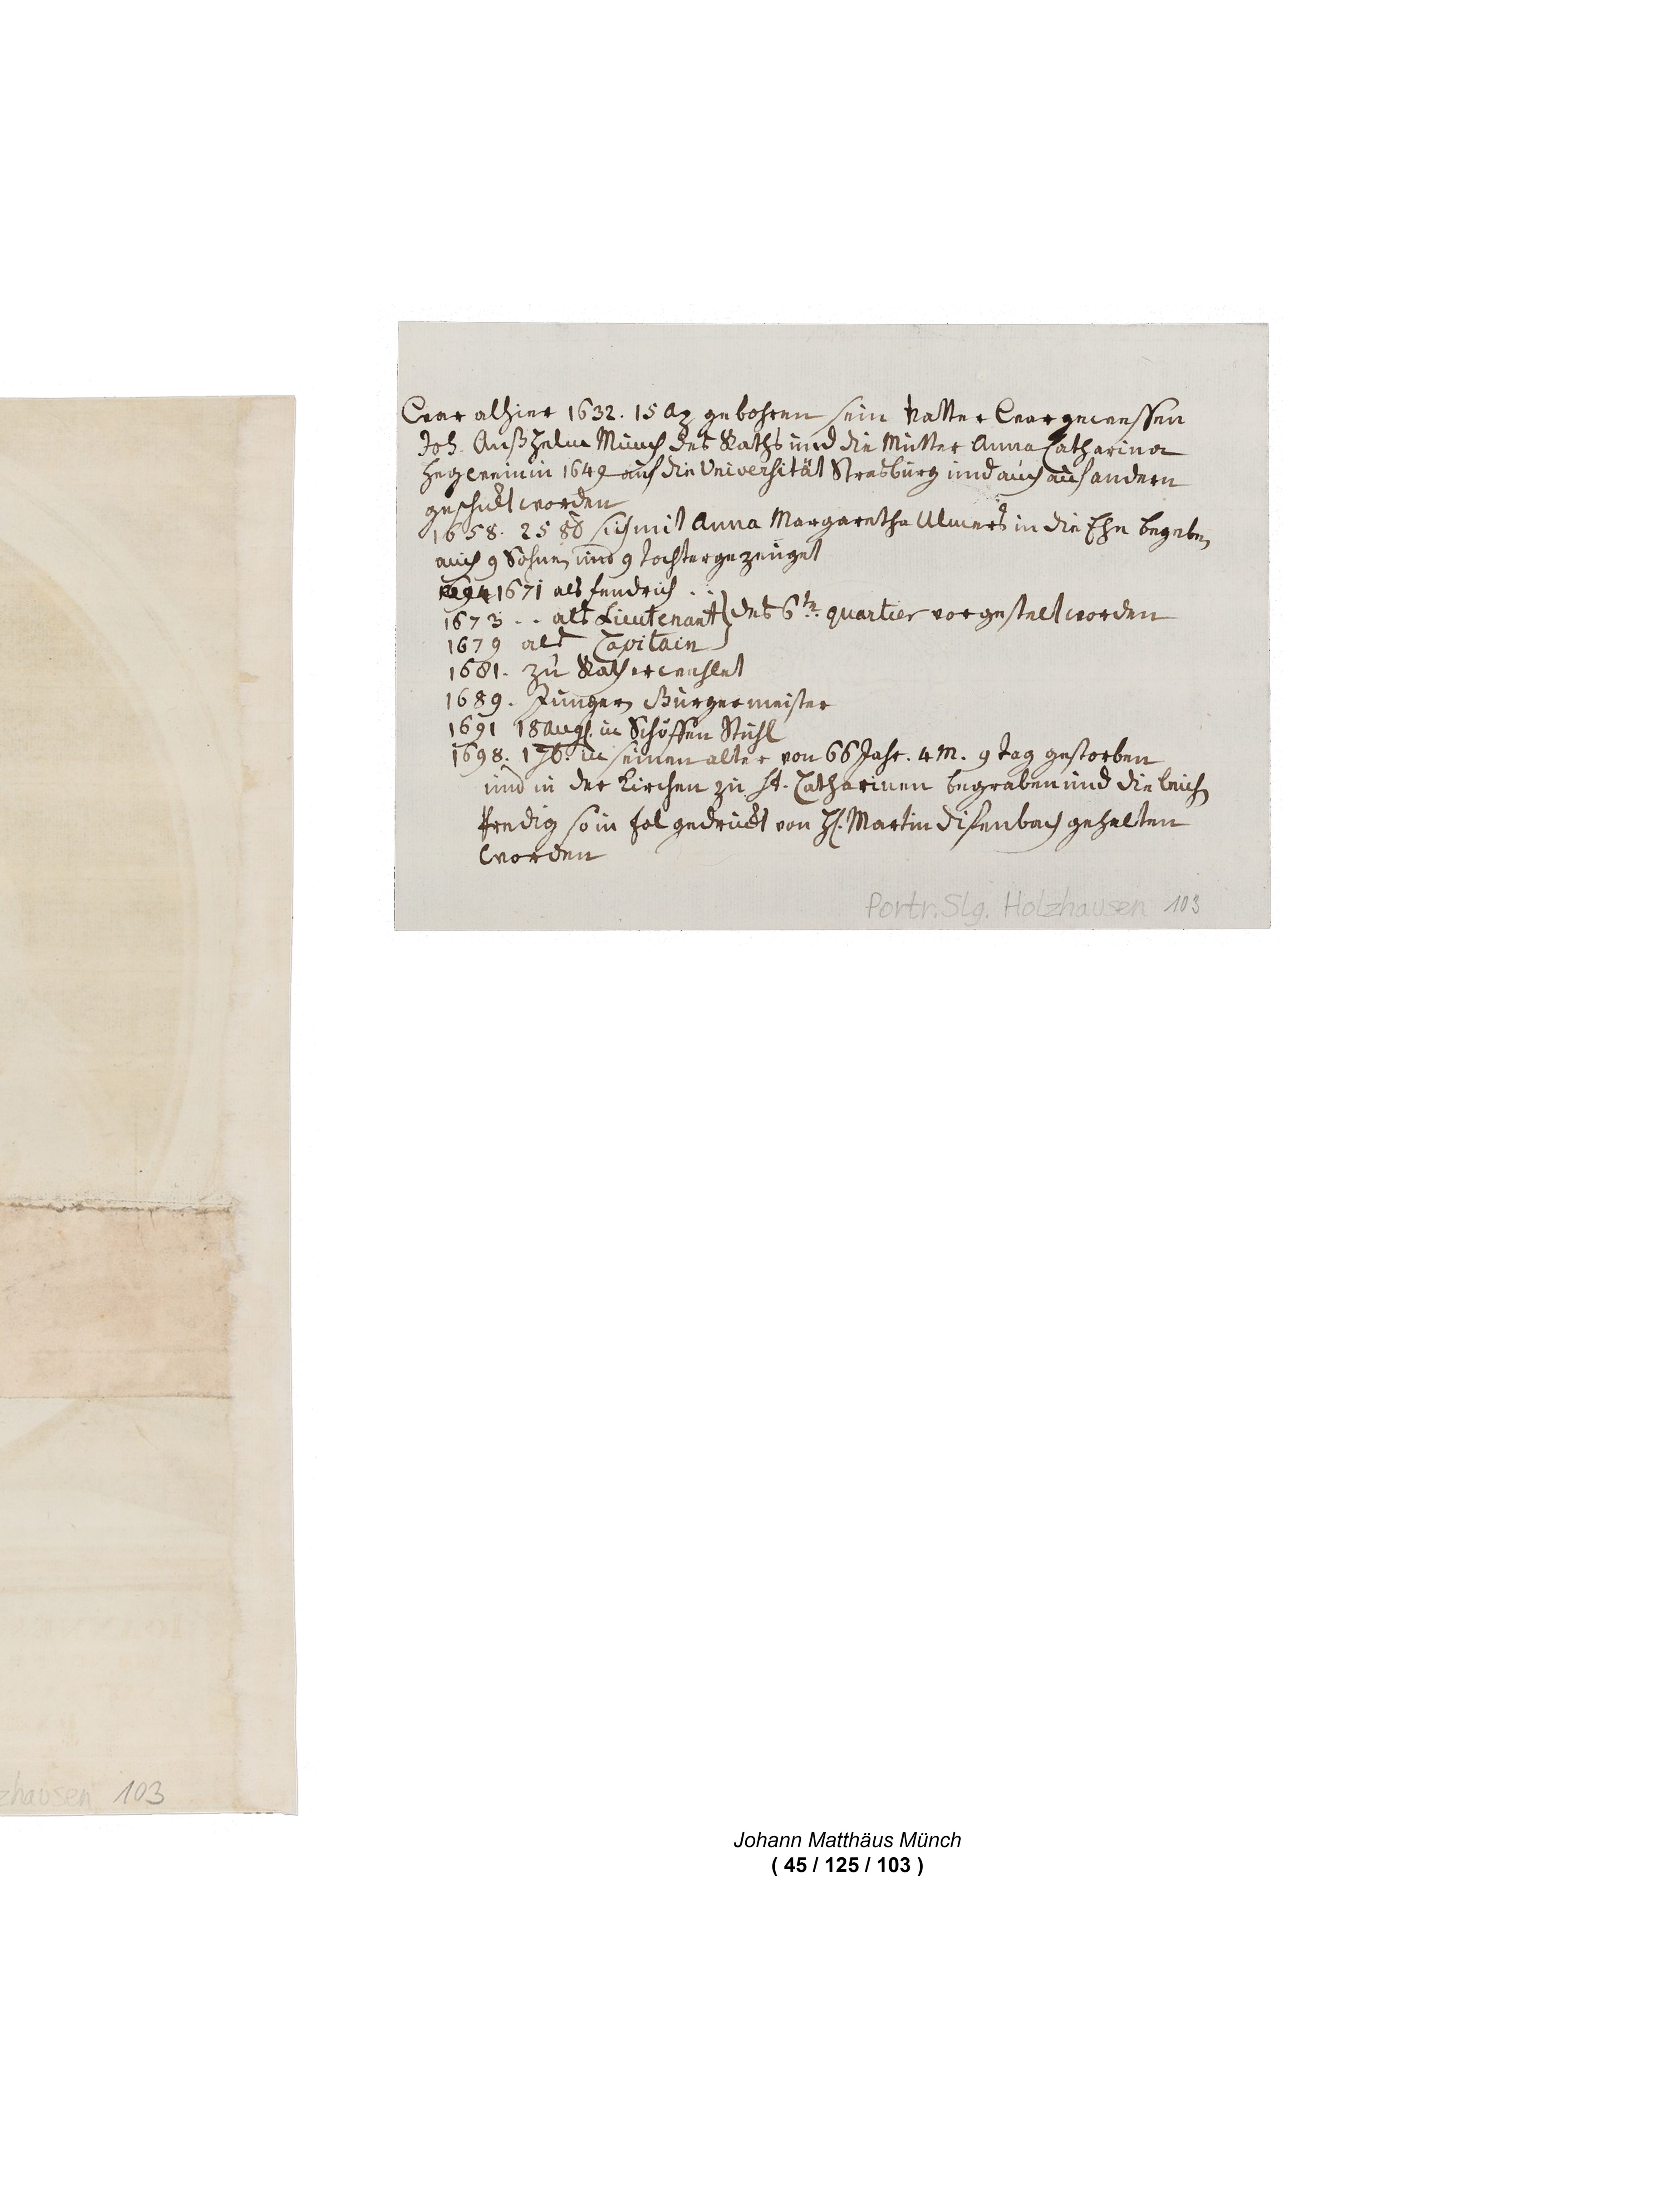 War alhier 1632. 15 Ap gebohren sein Vatter War gewessen
Joh. Anßhelm Münch des Raths und die Mutter Anna Catharina
in 1649 auf die Universität Strasburg und auch auf andern
geschickt worden
1658. 25 8b sich mit Anna Margaretha Ulmers in die Ehe begeben
auch 9 Sohne, und 9 tochter gezeuget
1671 als fendrich . .
1673 . . als Lieutenant des 6te quartier vorgestelt worden
1679 als Capitain
1681. zu Rath erwehlet
1689. Jünger Bürgermeister
1691 18 Aug. in Schöffen Stuhl
1698. in seinen alter von 66 Jahr. 4 M. 9 tag gestorben
und in der Kirchen zu St. Catharinen begraben und die leich
Predig so in fol gedruckt von H. Martin Difenbach gehalten
Worden
Portr. Slg. Holzhausen 103
zhausen 103
Johann Matthäus Münch
( 45 / 125 / 103 )